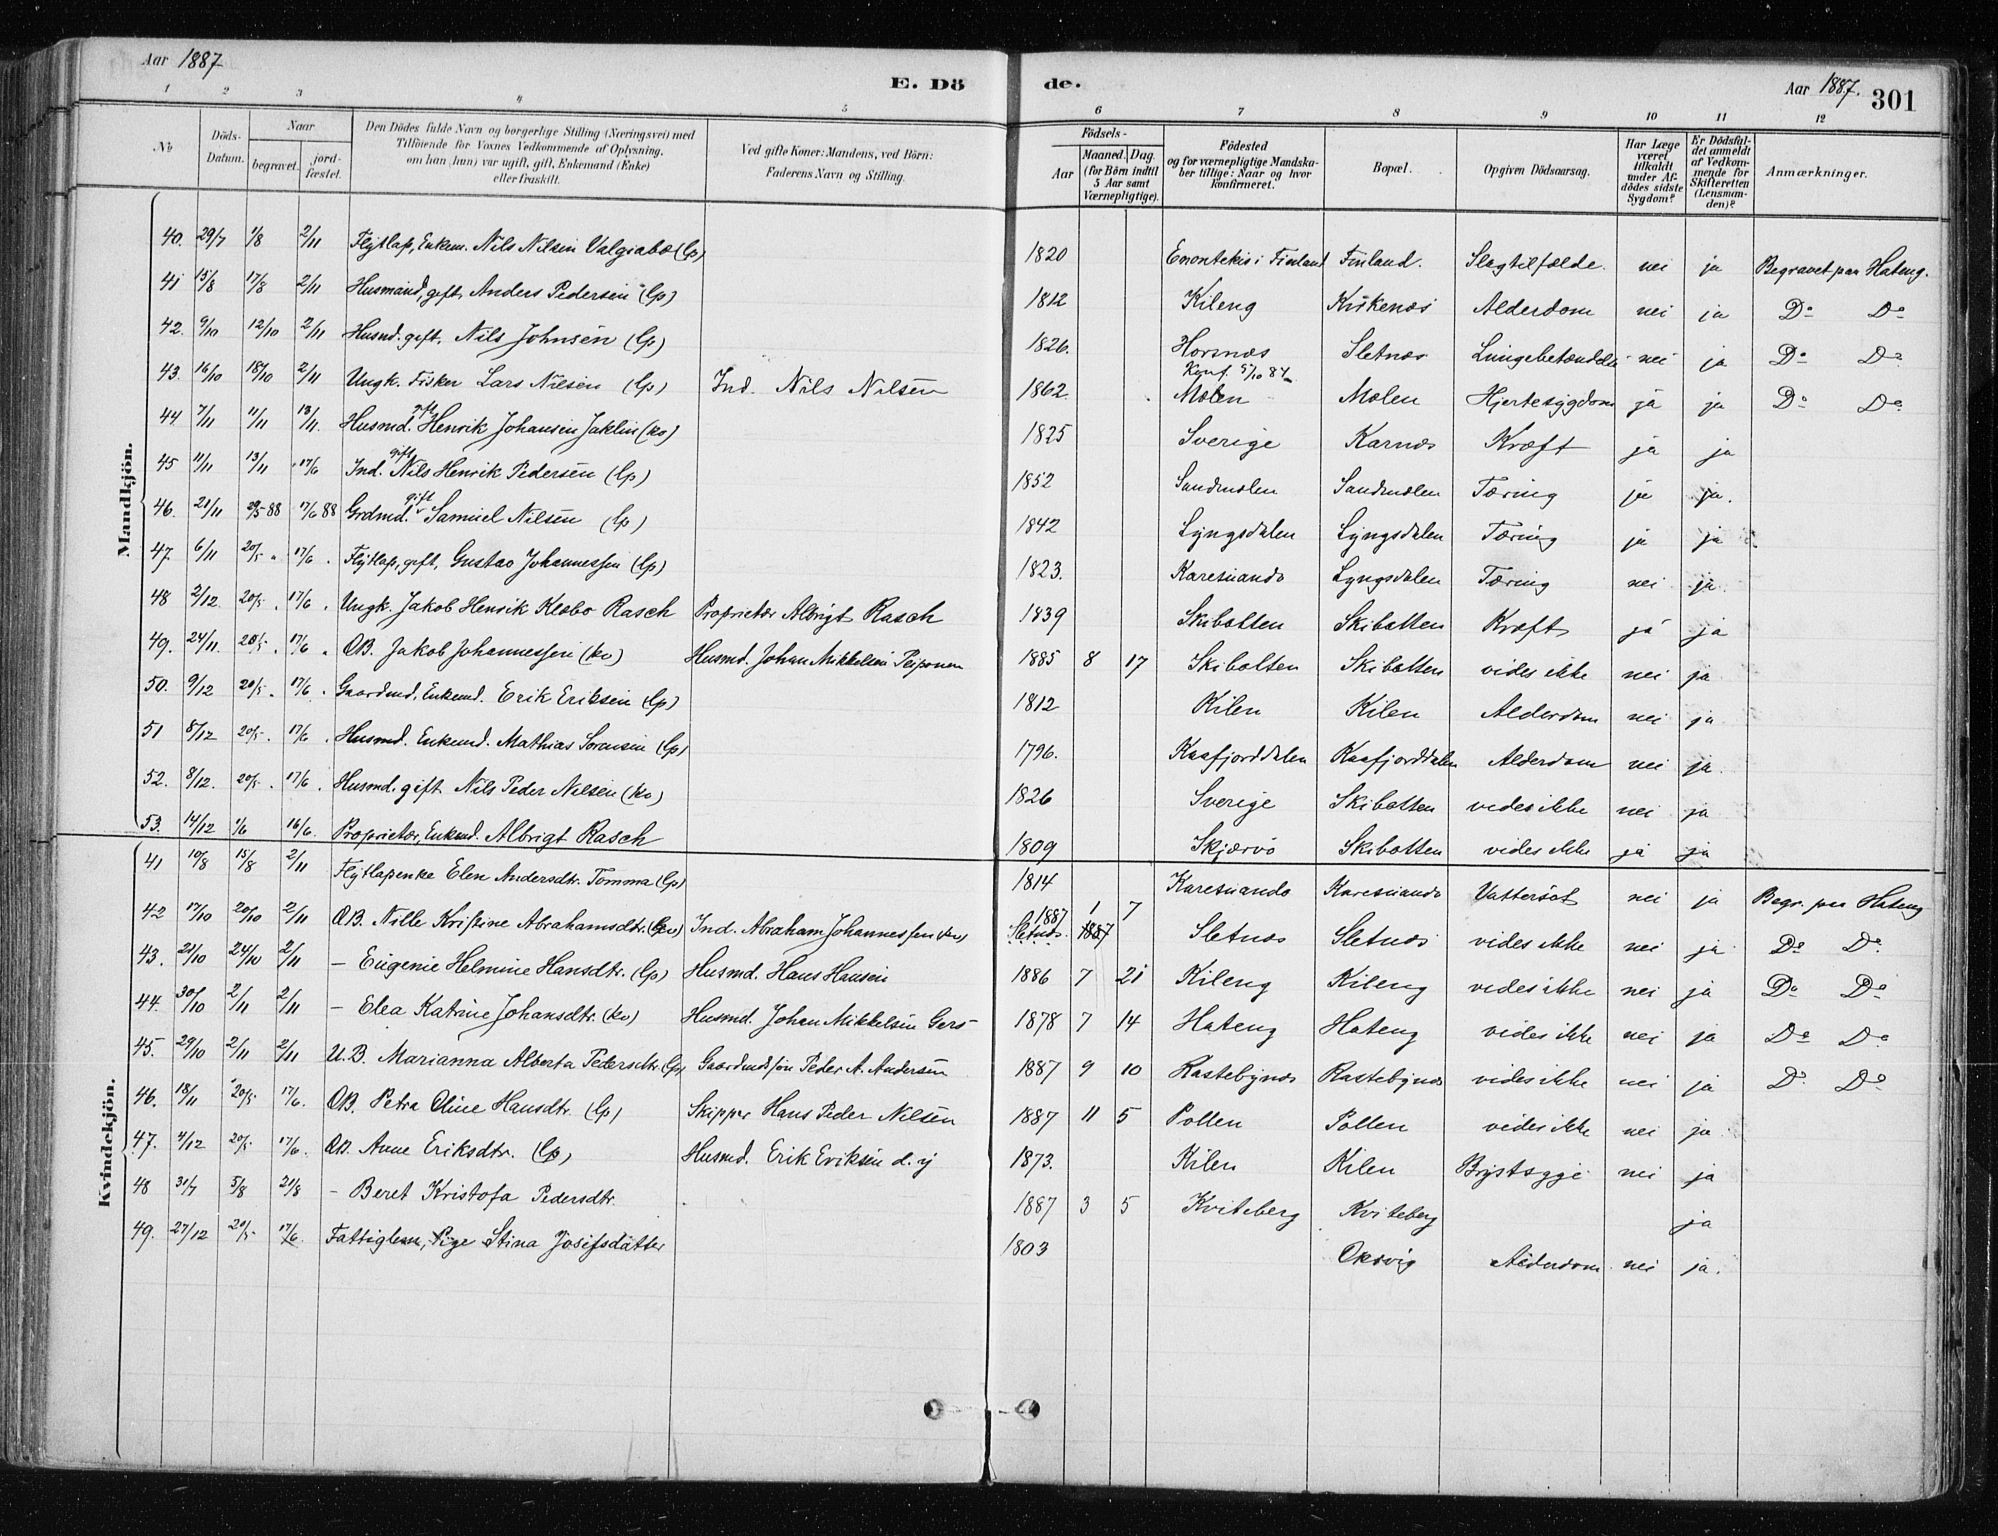 Aar 1887
E. Dö
de.
Aar 1887.
301
1 2 3 4 5 6 7 8 9 10 11 12
No
Döds-Datum.
Naar
begravet.
jord-fæstet.
Den Dödes fulde Navn og borgerlige Stilling (Næringsvei) med
Tilföiende for Voxnes Vedkommende af Oplysning,
om han (hun) var ugift, gift, Enkemand (Enke)
eller fraskilt.
Ved gifte Koner: Mandens, ved Börn:
Faderens Navn og Stilling.
Födsels-
Aar
Maaned. Dag.
(for Börn indtil
5 Aar samt
Værnepligtige).
Födested
og for værnepligtige Mandska-
ber tillige: Naar og hvor
konfirmeret.
Bopæl.
Opgiven Dödsaarsag.
Har Læge
været
tilkaldt
under Af-
dödes sidste
Sygdom?
Er Dödsfal-
det anmeldt
af Vedkom-
mende for
Skifteretten
(Lensman-
den)?
Anmærkninger.
Mandkjön.
40. 29/7 1/8 2/11 Flytlap, Enkem. Nils Nilsen Valgiabæ (lp) 1820 Enontekis i Finland Finland. Slagtilfælde. nei ja Begravet paa Hateng.
41 15/8 17/8 2/11 Husmand, gift, Anders Pedersen (lp) 1812 Kileng Kirkenæs Alderdom nei ja Do Do
42. 9/10 12/10 2/11 Husmd. gift, Nils Johnsen (lp) 1826. Horsnæs Sletnæs Lungebetændelse nei ja Do Do
43. 16/10 18/10 2/11 Ungk. Fisker Lars Nilsen (lp) Ind. Nils Nilsen 1862. Konf. 5/10 87 Molen Molen Hjertesygdom ja ja Do Do
44 7/11 11/11 13/11. Husmd. gift Henrik Johansen Jaklin (kv) 1825 Sverige Karnæs Kræft ja ja
45 11/11 13/11 17/6 Ind. gift Nils Henrik Pedersen (lp) 1852 Sandmolen Sandmolen Tæring ja ja.
46. 21/11 20/5 88 17/6 88 Grdmd. gift Samuel Nilsen (lp) 1842 Lyngsdalen Lyngsdalen Tæring ja ja
47. 6/11 20/5 " 17/6 . Flytlap, gift, Gustav Johannessen (lp) 1823. Karesuando Lyngsdalen Tæring nei ja.
48 2/12 20/5 . 17/6 . Ungk. Jakob Henrik Klæbo Rasch Proprietær Albrigt Rasch 1839 Skibotten Skibotten Kræft ja ja
49. 24/11. 20/5 . 17/6 . ÆB. Jakob Johannessen (kv) Husmd. Johan Mikkelsen Peiponen 1885 8 17 Skibotten Skibotten vides ikke nei ja
50. 9/12 20/5 . 17/6 . Gaardmd. Enkemd. Erik Eriksen (lp) 1812 Kilen Kilen Alderdom nei ja
51 8/12 20/5 . 17/6 . Husmd. Enkemd. Mathias Sorensen (lp) 1796. Kaafjorddalen Kaafjorddalen Alderdom nei ja.
52. 8/12. 20/5 . 17/6 . Husmd. gift Nils Peder Nilsen (kv) 1826 Sverige Skibotten vides ikke nei ja
53. 14/12 1/6 16/6. Proprietær, Enkemd. Albrigt Rasch 1809 Skjærvö Skibotten vides ikke ja ja
Kvindekjön.
41 10/8 15/8 2/11 Flytlapenke Elen Andersdtr. Tomma (lp) 1814 Karesuando Karesuando Vattersot nei ja Begr. paa Hateng
42 17/10 20/10 2/11 ÆB. Nille Kristine Abrahamsdtr. (kv) Ind. Abraham Johannessen (kv) 1887 1 7 Sletnæs Sletnæs vides ikke nei ja Do Do.
43. 21/10 24/10 2/11 – Eugenie Helmine Hansdtr. (lp) Husmd. Hans Hansen 1886 7 21 Kileng Kileng vides ikke nei ja Do Do
44. 30/10 2/11 2/11 – Elea Katrine Johansdtr. (kv) Husmd. Johan Mikkelsen Gers 1878 7 14 Hateng Hateng vides ikke nei ja Do Do
45. 29/10 2/11 2/11 U.B. Marianna Alberta Pedersdtr. (lp) Gaardmdssön Peder A. Andersen 1887 9 10 Rastebynæs Rastebynæs vides ikke nei ja Do Do
46. 18/11 20/5 17/6. ÆB. Petra Oline Hansdtr. (lp) Skipper Hans Peder Nilsen 1887 11 5 Pollen Pollen vides ikke nei ja
47. 4/12 20/5 17/6. ÆB. Anne Eriksdtr. (lp) Husmd. Erik Eriksen d. y 1873. Kilen Kilen Brystsyge nei ja
48 31/7 5/8 21/8 – Beret Kristofa Pedersdtr. 1887 3 5 Kviteberg Kviteberg ja
49. 27/12 20/5 17/6 Fattiglem, Pige Stina Josefsdatter 1803 Oksvig Alderdom. nei ja.